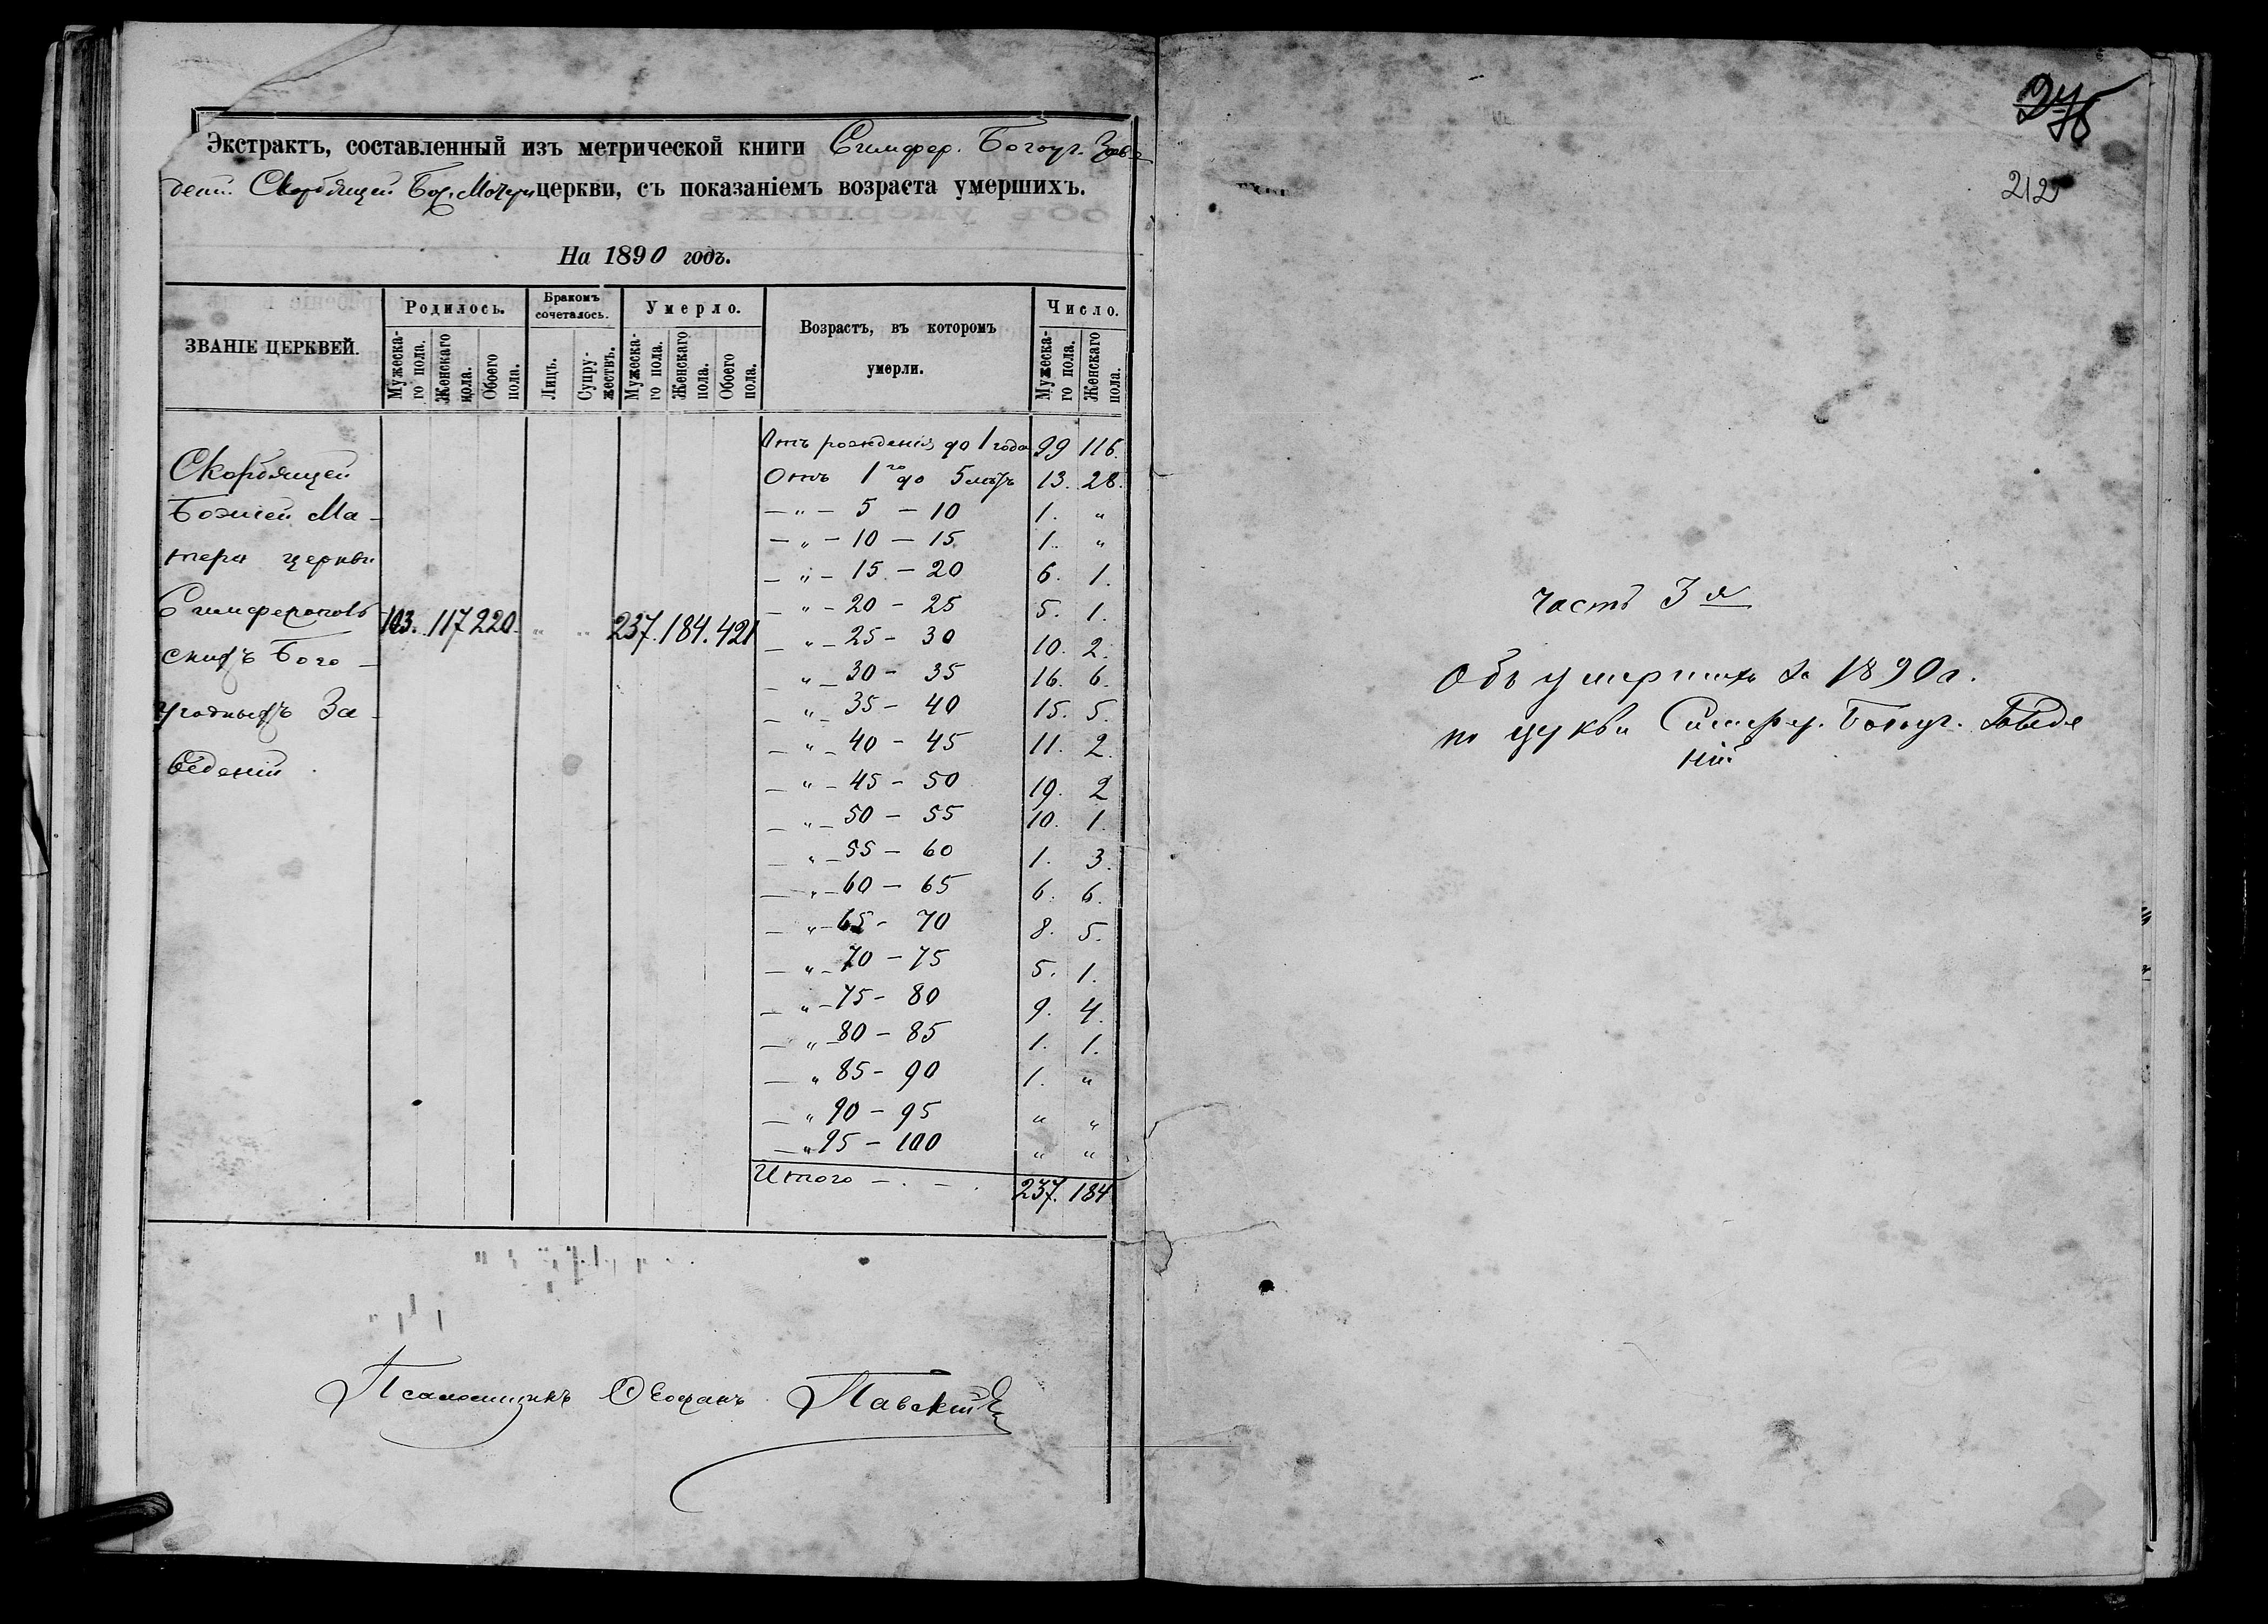 Экстрактъ, составленный изъ метрической книги Симфер. Богоуг. Заве-
ден. Скорбящей Бож. Матери церкви, съ показаніемъ возраста умершихъ.
На 1890 годъ.
ЗВАНІЕ ЦЕРКВЕЙ.
Родилось.
Мужеска-го пола.
Женскаго пола.
Обоего пола.
Бракомъ сочеталось.
Лицъ.
Супру-жествъ.
Умерло.
Мужеска-го пола.
Женскаго пола.
Обоего пола.
Возрастъ, въ которомъ умерли.
Число.
Мужеска-го пола.
Женскаго пола.
Скорбящей
Божіей Ма-
тери церкви
Симферопольс
скихъ Бого-
угодныхъ За-
веденій.
103. 117 220. " " 237. 184. 421
Отъ рожденія до 1 года 99 116.
Отъ 1го до 5 лѣтъ 13. 28.
— " — 5 — 10 1. "
— " — 10 — 15 1. "
— " — 15 — 20 6. 1.
— " — 20 — 25 5. 1.
— " — 25 — 30 10. 2.
— " — 30 — 35 16. 6.
— " — 35 — 40 15. 5.
— " — 40 — 45 11. 2.
— " — 45 — 50 19. 2
— " — 50 — 55 10. 1.
— " — 55 — 60 1. 3.
— " — 60 — 65 6. 6.
— " — 65 — 70 8. 5.
— " — 70 — 75 5. 1.
— " — 75 — 80 9. 4.
— " — 80 — 85 1. 1.
— " 85 — 90 1. "
— " 90 — 95 " "
— " 95 — 100 " "
Итого — . — . 237. 184
Псаломщикъ Ѳеофанъ Павскій
212
часть 3я
Объ умершихъ за 1890 г.
по церкви Симфер. Богоуг. Заведе
ній